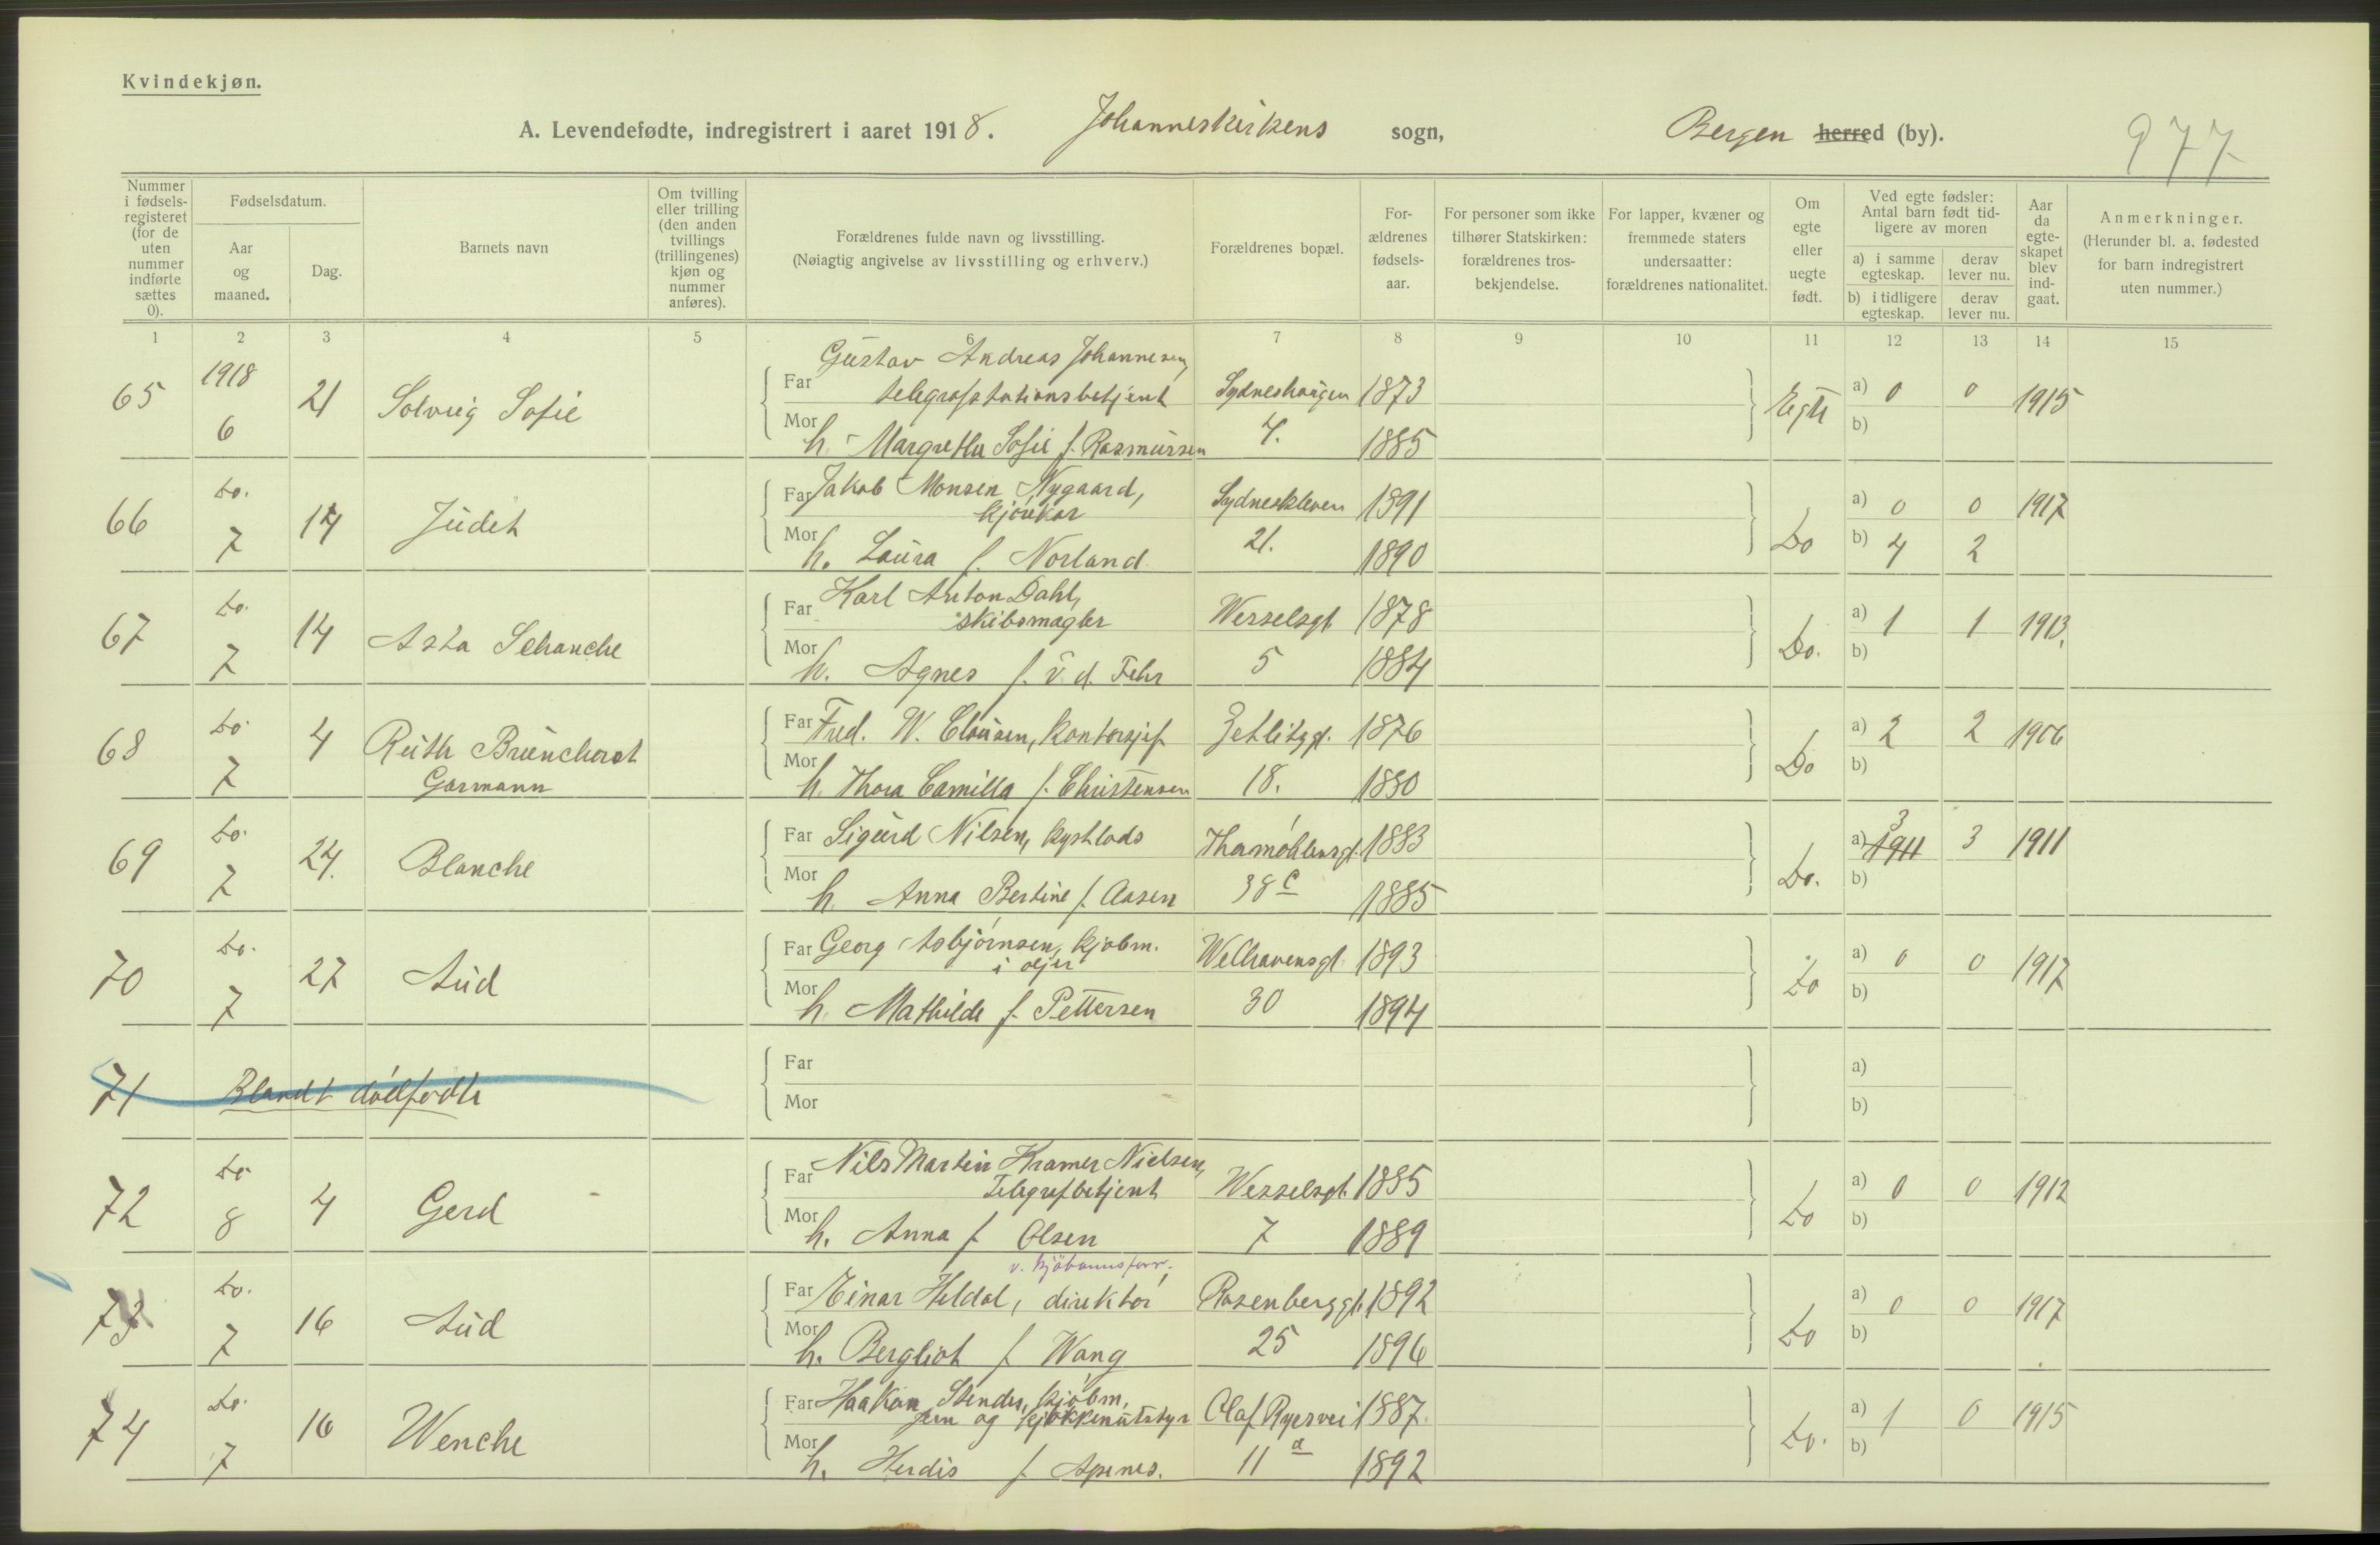 Kvindekjøn.
A. Levendefødte, indregistrert i aaret 1918. Johanneskirkens sogn, Bergen herred (by). 977
Nummer i fødsels-registeret (for de uten nummer indførte sættes 0).
Fødselsdatum.
Aar og maaned.
Dag.
Barnets navn
Om tvilling eller trilling (den anden tvillings (trillingenes) kjøn og nummer anføres).
Forældrenes fulde navn og livsstilling.
(Nøiagtig angivelse av livsstilling og erhverv.)
Forældrenes bopæl.
For-ældrenes fødsels-aar.
For personer som ikke tilhører Statskirken: forældrenes tros-bekjendelse.
For lapper, kvæner og fremmede staters undersaatter: forældrenes nationalitet.
Om egte eller uegte født.
Ved egte fødsler: Antal barn født tid-ligere av moren
a) i samme egteskap. derav lever nu.
b) i tidligere egteskap. derav lever nu.
Aar da egte-skapet blev ind-gaat.
Anmerkninger.
(Herunder bl. a. fødested for barn indregistrert uten nummer.)
1 2 3 4 5 6 7 8 9 10 11 12 13 14 15
65 1918 6 21 Solveig Sofie
Far Gustav Andreas Johannesen, telegrafstationsbetjent Sydneshaugen 1873
Mor h. Margrethe Sofie f. Rasmussen 4. 1885
Egte a) 0 0 1915
b)
66 Do. 7 14 Judet
Far Jakob Monsen Nygaard, Sydneskleven 1891
Mor h. Laura f. Norland 21. 1890
Do a) 0 0 1917
b) 4 2
67 Do. 7 14 Asta Schanche
Far Karl Anton Dahl, skibsmægler Wesselsgt 1878
Mor h. Agnes f. v. d. Fehr 5 1884
Do. a) 1 1 1913.
b)
68 Do 7 4 Ruth Brünchorst Garmann
Far Fred. W. Clausen, kontorsjef Zetlitzgt. 1876
Mor h. Thora Camilla f. Christensen 18. 1880
Do a) 2 2 1906
b)
69 Do. 7 24. Blanche
Far Sigurd Nilsen, kystlods Thormøhlensgt. 1883
Mor h. Anna Bertine f. Aasen 38 c 1885
Do. a) 1911 3 3 1911
b)
70 Do. 7 27 Aud
Far Georg Asbjørnsen, kjøbm. i oljer Welhavensgt. 1893
Mor h. Mathilde f. Pettersen 30 1894
Do a) 0 0 1917
b)
71 Blandt dødfødte
Far
Mor
a)
b)
72 Do 8 4 Gerd
Far Nils Martin Kramer Nielsen, Telegrafbetjent Wesselsgt. 1885
Mor h. Anna f. Olsen 7 1889
Do a) 0 0 1912
b)
73 Do. 7 16 Aud
Far Einar Heldal, direktør Rosenberggt. 1892
Mor h. Bergliot f Wang 25 1896
Do a) 0 0 1917
b)
74 Do. 7 16 Wenche
Far Haakon Stender, kjøbm, jern og kjøkkenutstyr Olaf Ryesvei 1887
Mor h. Herdis f Apenes. 11 a 1892
Do. a) 1 0 1915
b)